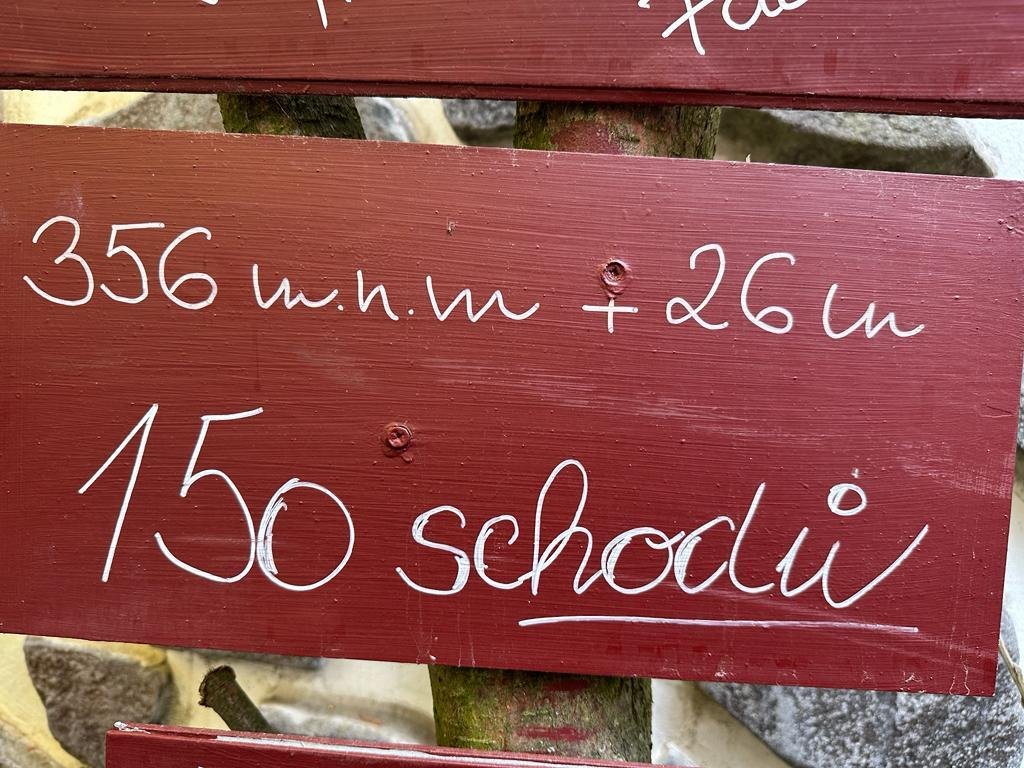 356 m.n.m + 26 m
150 schodů